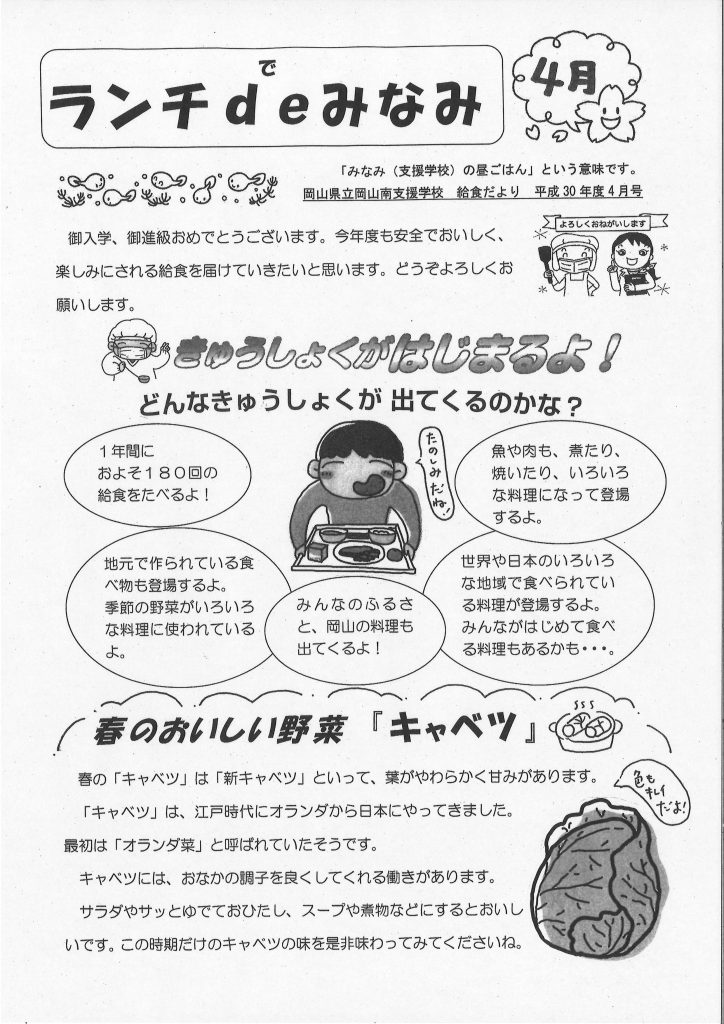 で
ランチdeみなみ
4月
「みなみ（支援学校）の昼ごはん」という意味です。
岡山県立岡山南支援学校　給食だより　平成30年度4月号
御入学、御進級おめでとうございます。今年度も安全でおいしく、
楽しみにされる給食を届けていきたいと思います。どうぞよろしくお
願いします。
よろしくおねがいします
きゅうしょくがはじまるよ！
どんなきゅうしょくが 出てくるのかな？
1年間に
およそ180回の
給食をたべるよ！
たのしみ
だね!
魚や肉も、煮たり、
焼いたり、いろいろ
な料理になって登場
するよ。
地元で作られている食
べ物も登場するよ。
季節の野菜がいろいろ
な料理に使われている
よ。
みんなのふるさ
と、岡山の料理も
出てくるよ！
世界や日本のいろいろ
な地域で食べられてい
る料理が登場するよ。
みんながはじめて食べ
る料理もあるかも・・・。
春のおいしい野菜『キャベツ』
春の「キャベツ」は「新キャベツ」といって、葉がやわらかく甘みがあります。
「キャベツ」は、江戸時代にオランダから日本にやってきました。
最初は「オランダ菜」と呼ばれていたそうです。
キャベツには、おなかの調子を良くしてくれる働きがあります。
サラダやサッとゆでておひたし、スープや煮物などにするとおいし
いです。この時期だけのキャベツの味を是非味わってみてくださいね。
色も
キレイ
だよ!